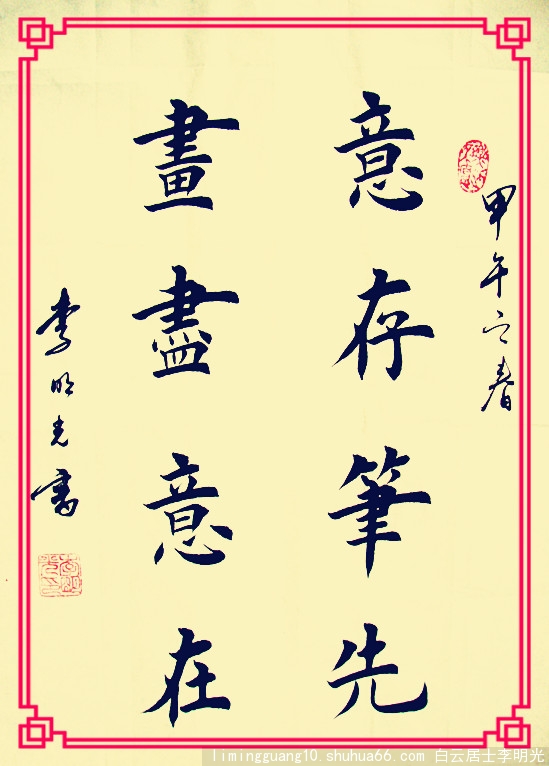 甲午之春
意存筆先
畫盡意在
李明光書
limingguang10.shuhua66.com 白云居士李明光